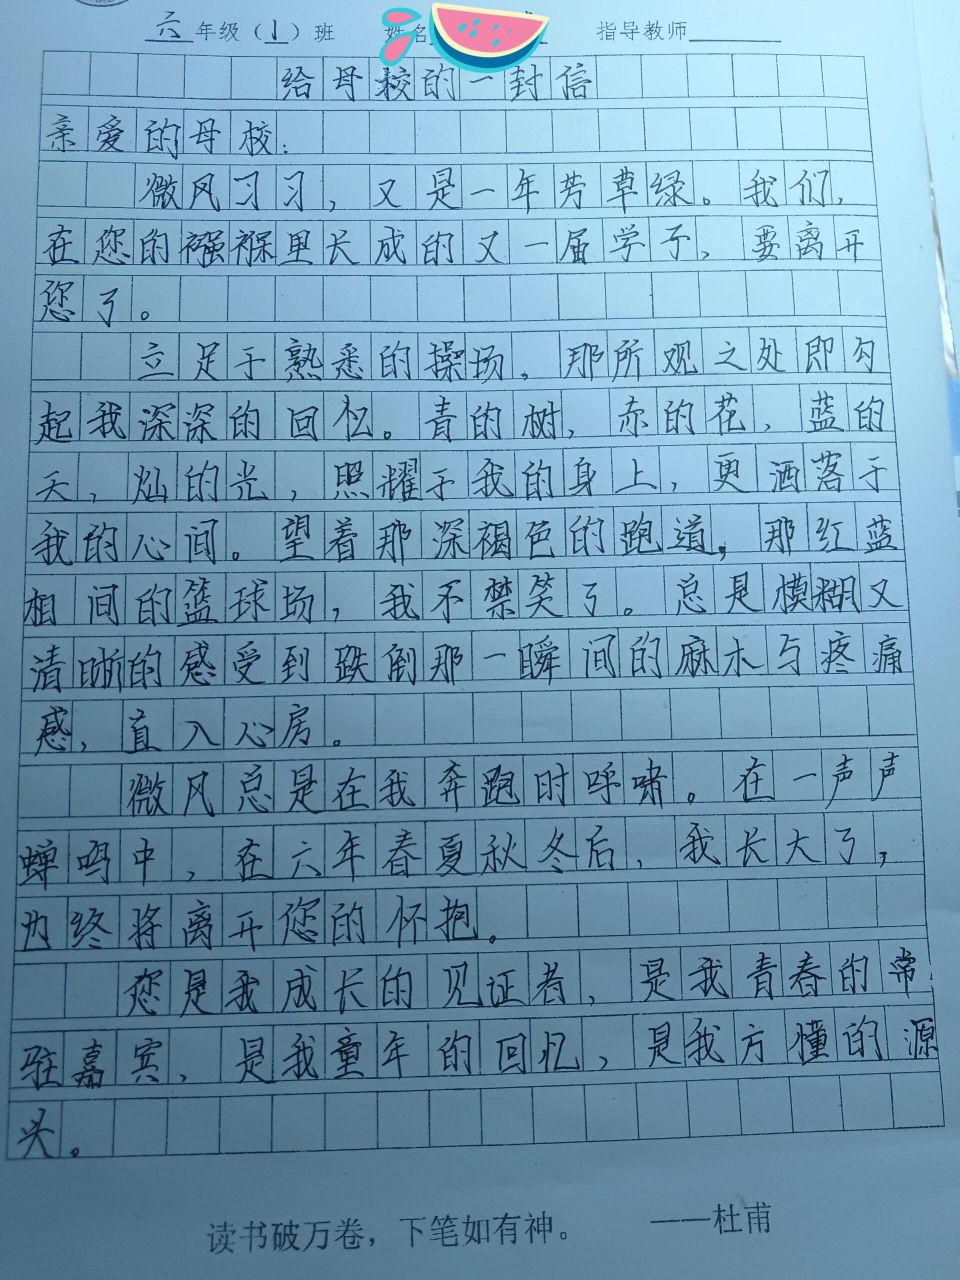 六年级（1）班 姓名 指导教师
给母校的一封信
亲爱的母校：
微风习习，又是一年芳草绿。我们，
在您的襁褓里长成的又一届学子，要离开
您了。
立足于熟悉的操场，那所观之处即勾
起我深深的回忆。青的树，赤的花，蓝的
天，灿的光，照耀于我的身上，更洒落于
我的心间。望着那深褐色的跑道，那红蓝
相间的篮球场，我不禁笑了。总是模糊又
清晰的感受到跌倒那一瞬间的麻木与疼痛
感，直入心房。
微风总是在我奔跑时呼啸。在一声声
蝉鸣中，在六年春夏秋冬后，我长大了，
也终将离开您的怀抱。
您是我成长的见证者，是我青春的常
驻嘉宾，是我童年的回忆，是我方懂的源
头。
读书破万卷，下笔如有神。 ——杜甫